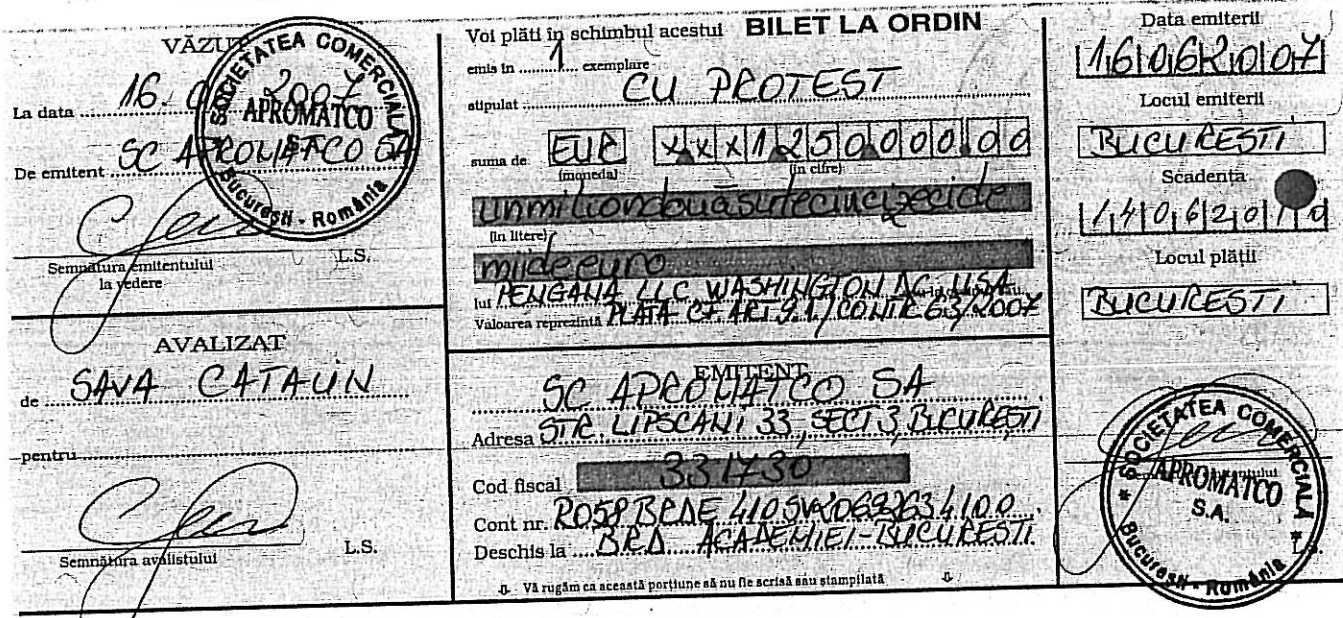 VĂZUT
La data 16. 2007
De emitent SC APROMATCO SA
Semnătura emitentului
la vedere
L.S.
SOCIETATEA COMERCIALĂ
APROMATCO
București - România
AVALIZAT
de SAVA CATALIN
pentru
Semnătura avalistului
L.S.
Voi plăti în schimbul acestui BILET LA ORDIN
emis în 1 exemplare
stipulat CU PROTEST
suma de EUR XXX1250000,00
(moneda) (în cifre)
unmiliondouăsutecincizecide
(în litere)
miideeuro
lui PENGANA LLC WASHINGTON USA
Valoarea reprezintă PLATA CF. ART 9.1./CONTR 63/2007
EMITENT
SC APROMATCO SA
Adresa STR. LIPSCANI 33, SECT 3, BUCUREȘTI
Cod fiscal 331730
Cont nr.
Deschis la BRD ACADEMIEI-BUCUREȘTI
Vă rugăm ca această porțiune să nu fie scrisă sau ștampilată
Data emiterii
16062007
Locul emiterii
BUCUREȘTI
Scadența
14062010
Locul plății
BUCUREȘTI
SOCIETATEA COMERCIALĂ
APROMATCO
S.A.
București - România
L.S.